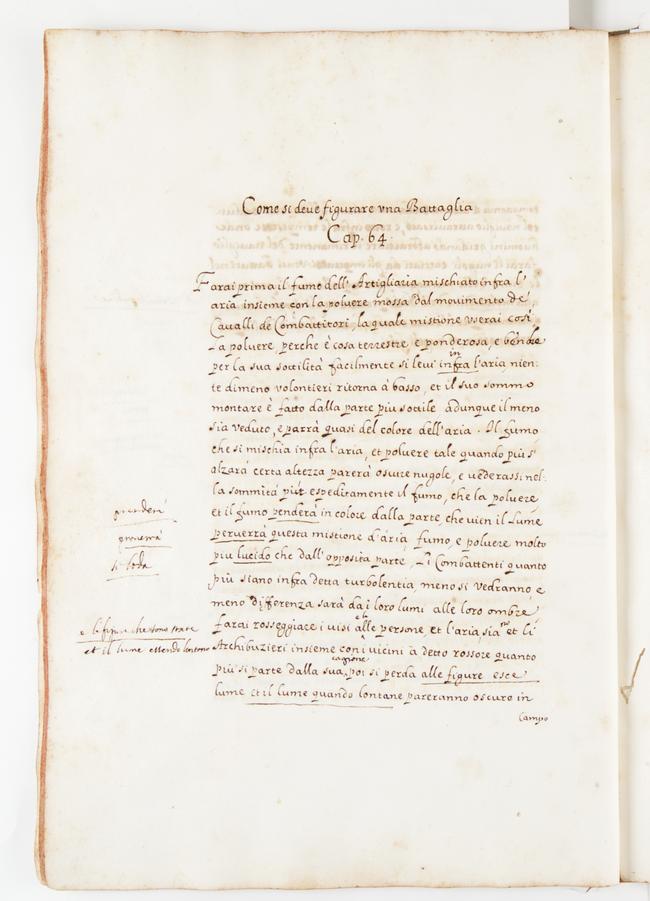 Come si deve figurare vna Battaglia
Cap. 64.
Farai prima il fumo dell' Artigliaria mischiato infra l'
aria insieme con la poluere mossa dal movimento de'
Cavalli de Combattitori, la quale mistione vserai così
La poluere, perche è cosa terrestre, e ponderosa, e benche
per la sua sottilità facilmente si levi infra l'aria nien=
in
te dimeno volontieri ritorna à basso, et il suo sommo
montare è fatto dalla parte piu sottile adunque il meno
sia veduto, e parrà quasi del colore dell'aria. Il fumo
che si mischia infra l'aria, et poluere tale quando più s'
alzarà certa altezza parerà oscure nugole, e uederassi nel=
la sommità più espeditamente il fumo, che la poluere
et il fumo penderà in colore dalla parte, che vien il Lume
peruerrà questa mistione d'aria, fumo, e poluere molto
piu lucido che dall' opposita parte, Li Combattenti quanto
più siano infra detta turbolentia, meno si vedranno, e
meno differenza sarà da i loro lumi alle loro ombre
farai rosseggiare i uisi alle persone, et l'aria, sia et li
Archibuzieri insieme con i vicini à detto rossore quanto
più si parte dalla sua, poi si perda alle figure esce
cagione
lume et il lume quando lontane pareranno oscure in
Campo
prenderà
si loda
e le figure che sono
et il lume essendo lontano